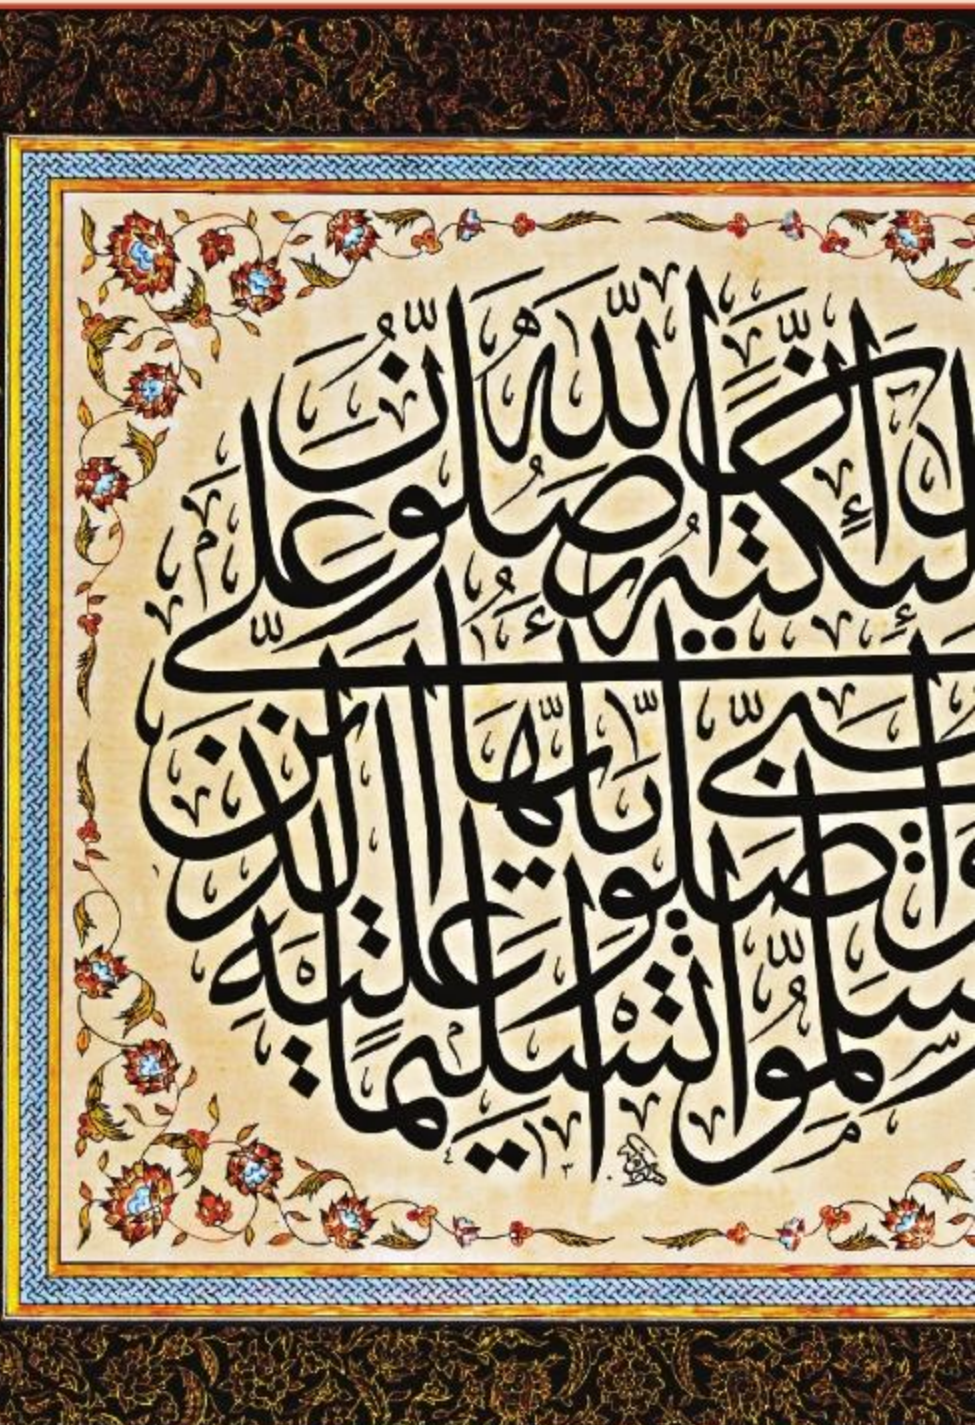 إِنَّ اللَّهَ وَمَلَٰئِكَتَهُ يُصَلُّونَ عَلَى
النَّبِيِّ يَا أَيُّهَا الَّذِينَ آمَنُوا
صَلُّوا عَلَيْهِ وَسَلِّمُوا تَسْلِيمًا